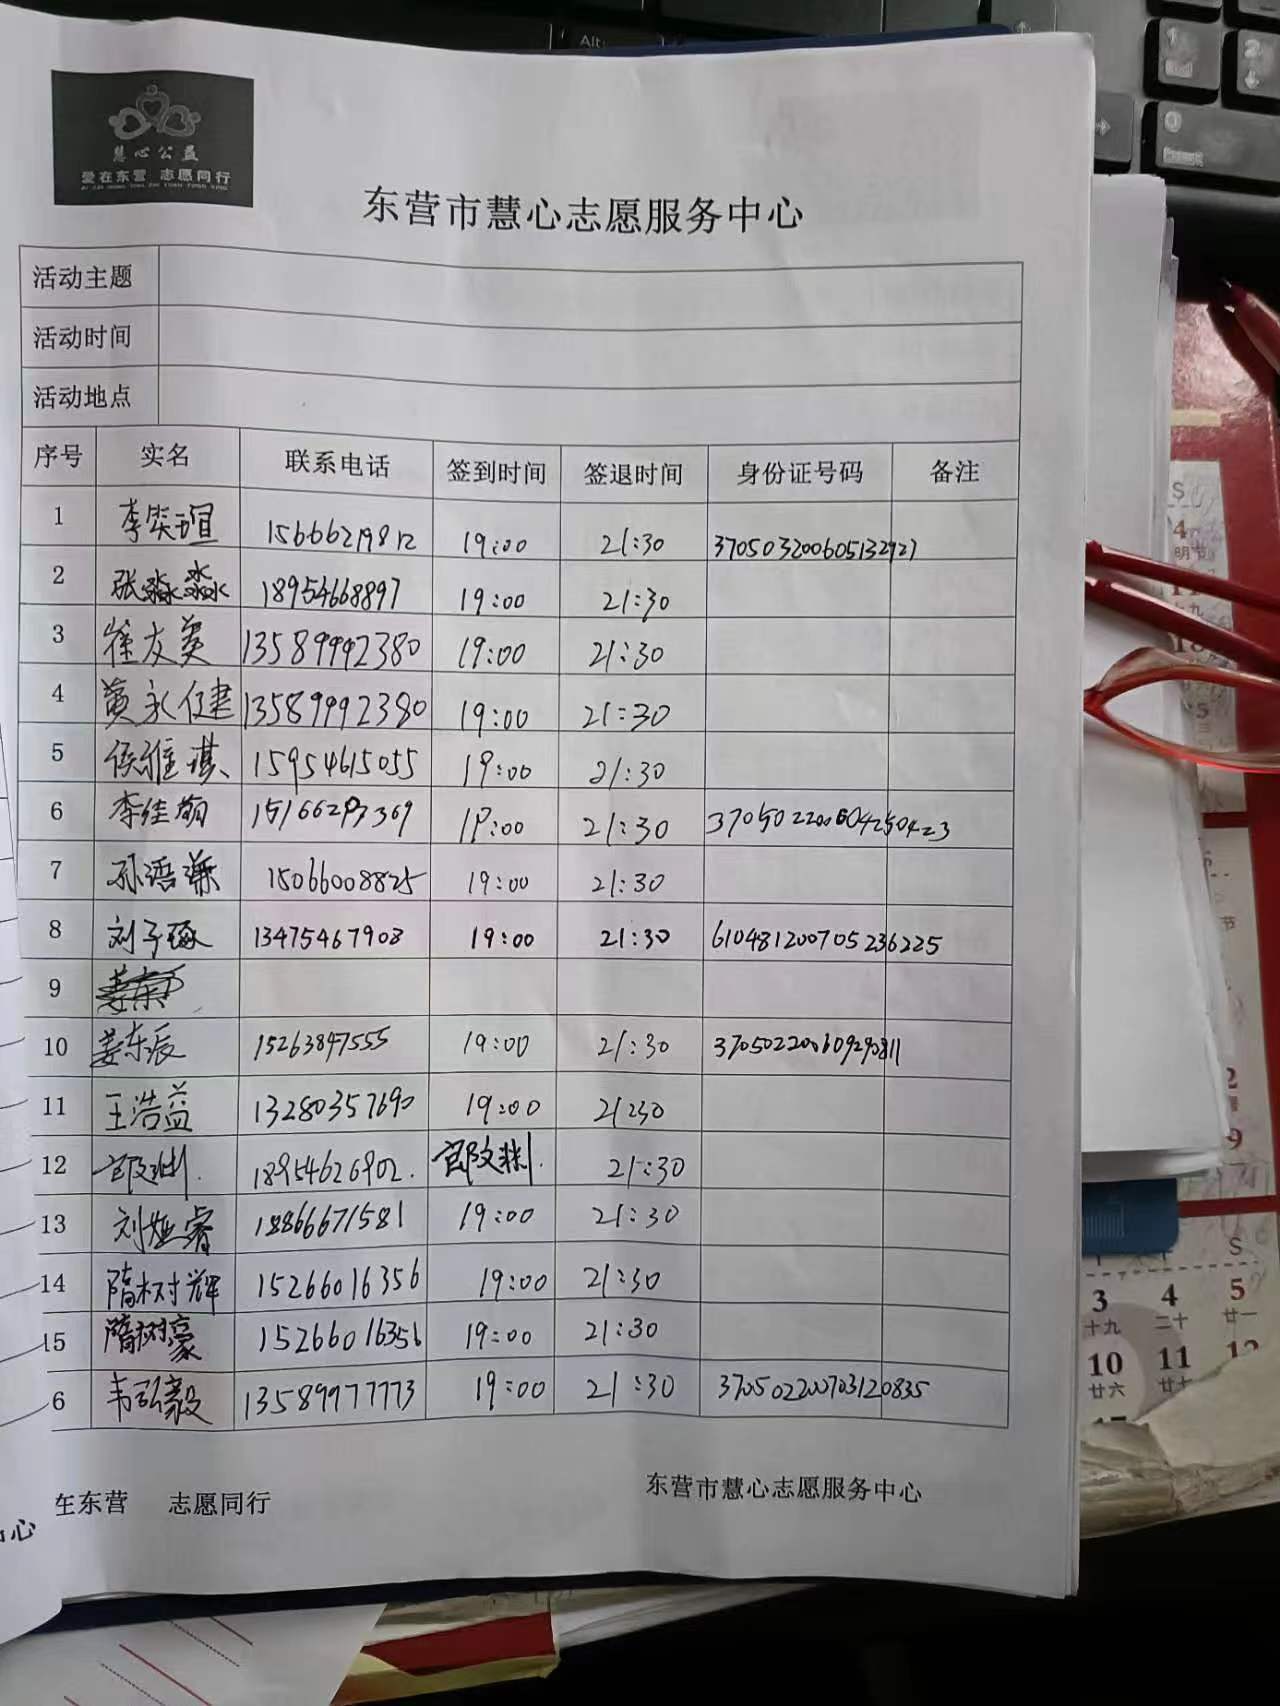 慧心公益
爱在东营 志愿同行
AI ZAI DONG YING ZHI YUAN TONG XING
东营市慧心志愿服务中心
活动主题
活动时间
活动地点
序号 实名 联系电话 签到时间 签退时间 身份证号码 备注
1 李奕瑄 15666219812 19:00 21:30 370503200605132927
2 张淼淼 18954668897 19:00 21:30
3 崔友美 13589992380 19:00 21:30
4 黄永健 13589992380 19:00 21:30
5 侯雅琪 15954615055 19:00 21:30
6 李佳朔 19:00 21:30
7 孙语谦 15066008825 19:00 21:30
8 刘子琢 13475467903 19:00 21:30 610481200705236225
9
10 姜东辰 15263847555 19:00 21:30 370502200609290811
11 王浩益 13280357690 19:00 21:30
12 18954626902. 21:30
13 刘烜睿 18866671581 19:00 21:30
14 隋树辉 15266016356 19:00 21:30
15 隋树豪 15266016356 19:00 21:30
6 韦弘毅 13589977773 19:00 21:30 370502200703120835
在东营 志愿同行
东营市慧心志愿服务中心
中心
Alt
S
4
S
3 4 5
十九 二十 廿一
10 11 12
廿六 廿七